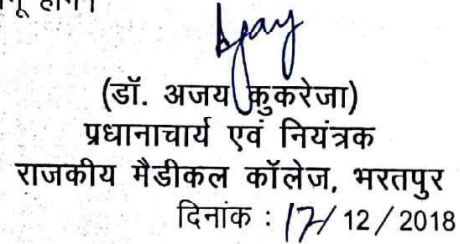 होंगे।
Ajay
(डॉ. अजय कुकरेजा)
प्रधानाचार्य एवं नियंत्रक
राजकीय मैडीकल कॉलेज, भरतपुर
दिनांक : 17/ 12 / 2018